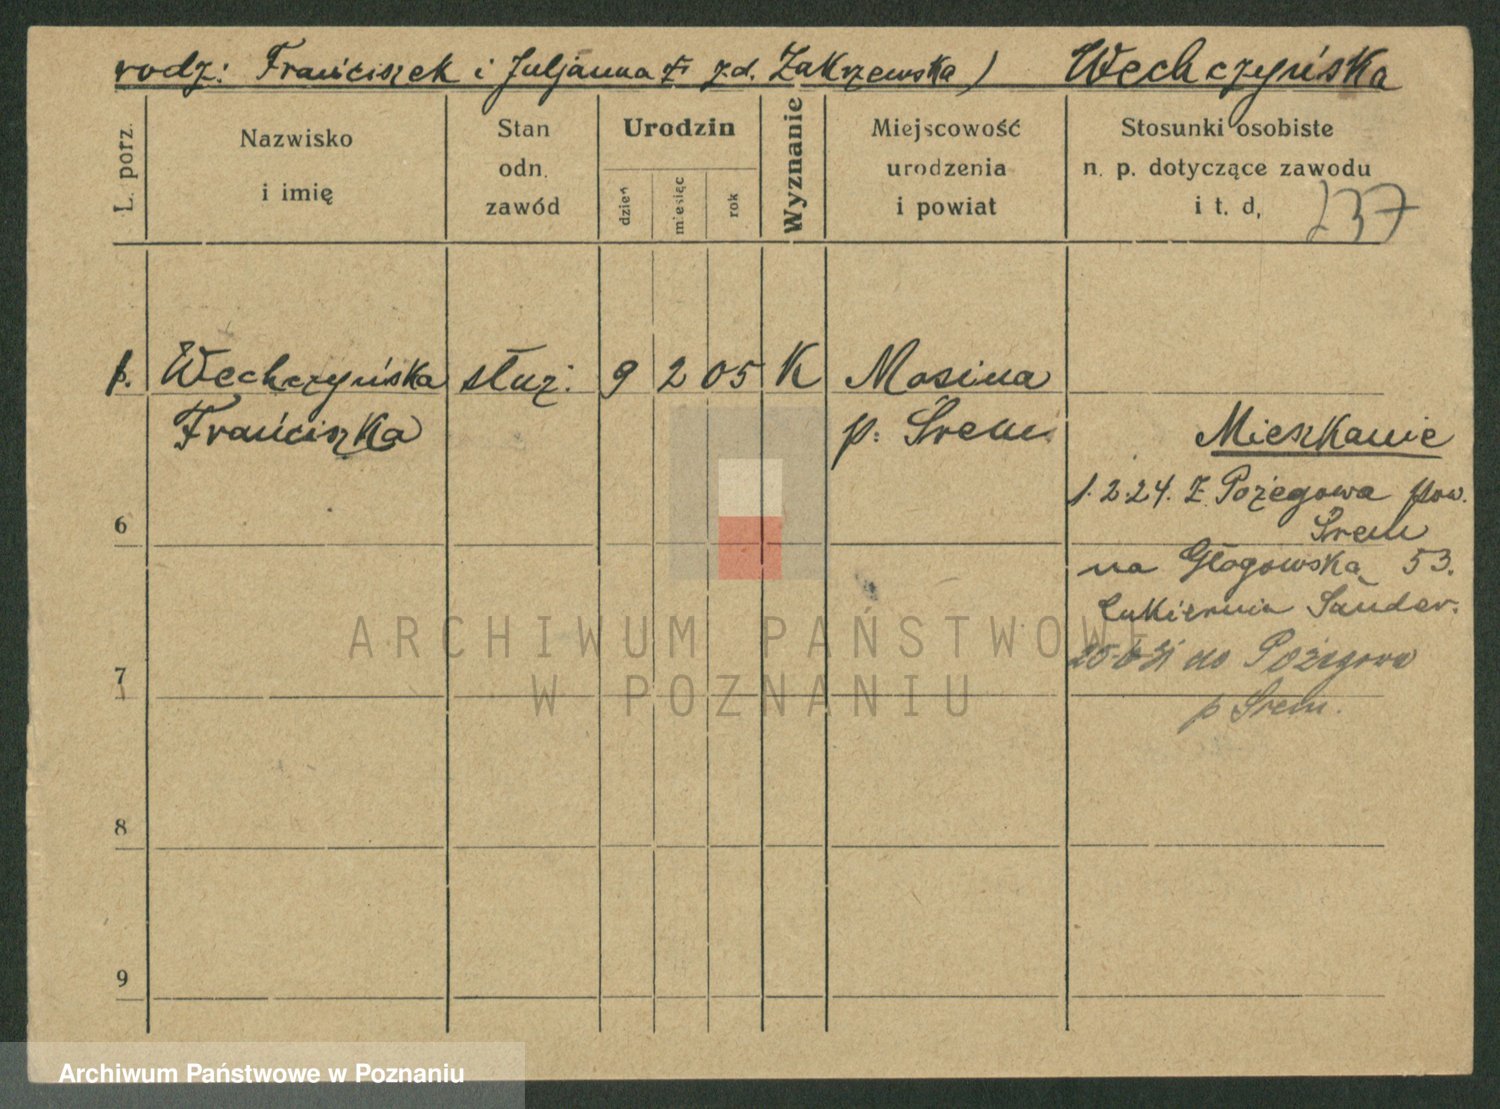 rodz: Frańciszek i Juljanna z. d. Zakrzewska) Wechczyńska
L. porz.
Nazwisko
i imię
Stan
odn.
zawód
Urodzin
dzień
miesiąc
rok
Wyznanie
Miejscowość
urodzenia
i powiat
Stosunki osobiste
n. p. dotyczące zawodu
i t. d.
237
1. Wechczyńska służ: 9 2 05 K Mosina
Frańciszka p: Śrem
Mieszkanie
1.2.24. Z Pożegowa pow.
Śrem
na Głogowską 53.
Cukiernia Sander.
25-6-31 do Pożegowo
p Śrem.
6
7
8
9
ARCHIWUM PAŃSTWOWE
W POZNANIU
Archiwum Państwowe w Poznaniu